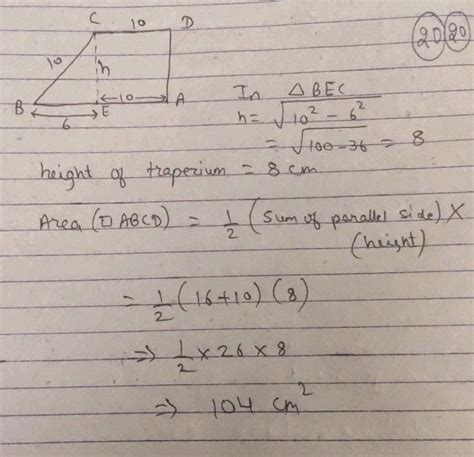 C 10 D
20 20
10 h
B 6 E 10 A
In △BEC
h = √10² - 6²
= √100-36 = 8
height of traperium = 8 cm
Area (□ ABCD) = 1/2 (Sum of parallel side) ×
(height)
= 1/2 (16+10) (8)
⇒ 1/2 × 26 × 8
⇒ 104 cm²